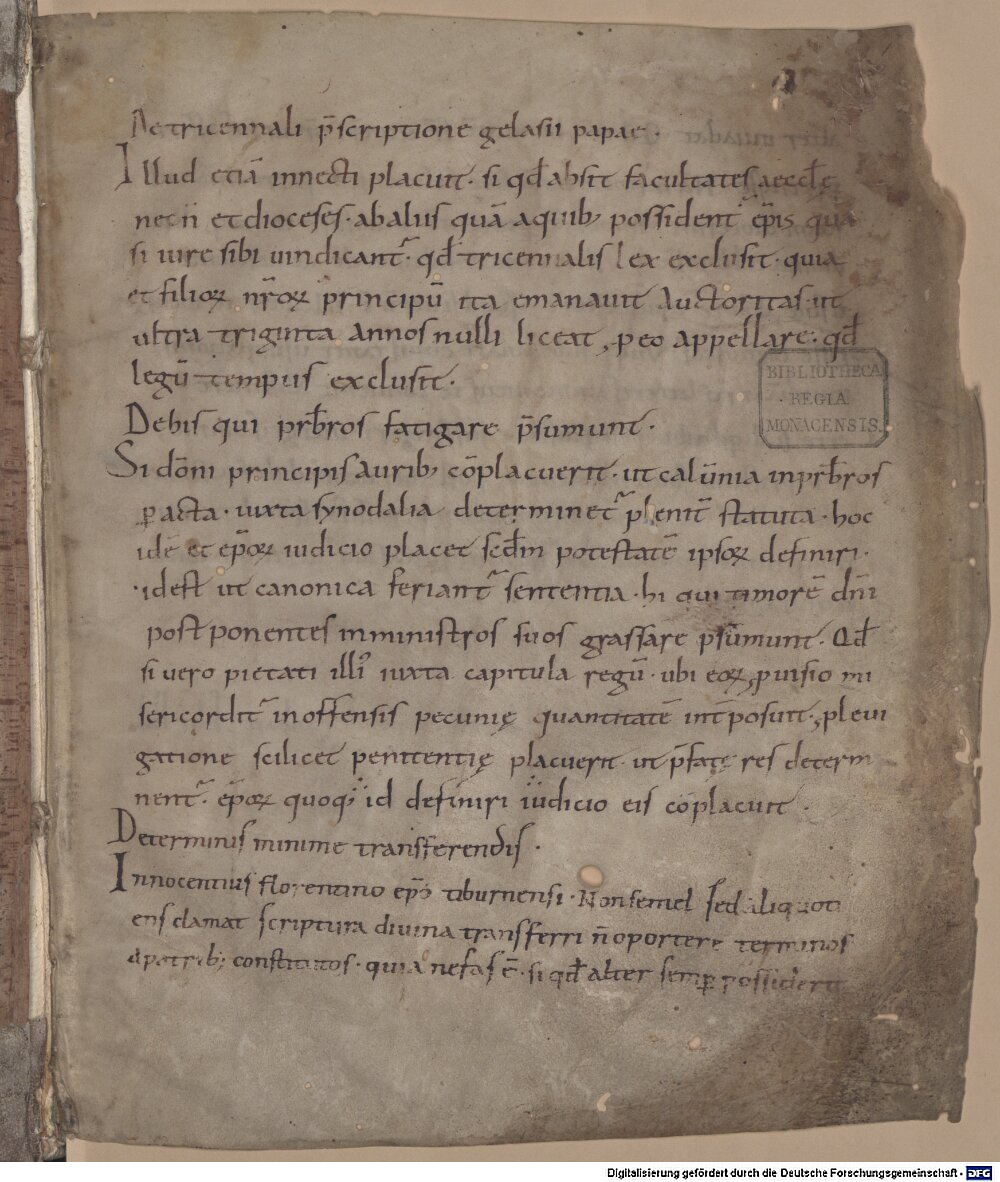 De tricennali p̄scriptione gelasii papae·
Illud etiā innecti placuit· si qd̄ absit facultates aeccl̄ę
nec ñ et dioceses· ab aliis quā a quib; possident᷑ ep̄is qua
si iure sibi uindicant᷑· qd̄ tricennalis lex exclusit· quia
et filioꝝ nr̄oꝝ principū ita emanauit auctoritas· ut
ultra triginta annos nulli liceat ꝓ eo appellare· qd̄
legū tempus exclusit·
BIBLIOTHECA
REGIA
MONACENSIS.
De his qui prb̄ros fatigare p̄sumunt·
Si dōni principis aurib; cōplacuerit· ut calūnia in prb̄ros
ꝑacta· iuxta synodalia determinet᷑ plenit̄ statuta· hoc
idē et ep̄oꝝ iudicio placet scd̄m potestatē ipsoꝝ definiri·
·id est ut canonica feriant᷑ sententia· hi qui timorē dn̄i
postponentes in ministros suos grassare p̄sūmunt· Qd̄
si uero pietati illi᷒ iuxta capitula regū· ubi eoꝝ ꝓuisio mi
sericordit᷑ in offensis pecunię quantitatē int̄posuit· ꝓ leui
gatione scilicet penitentię placuerit· ut p̄fatę res determi
nent᷑· ep̄oꝝ quoq; id definiri iudicio eis cōplacuit·
De terminis minime transferendis·
Innocentius florentino ep̄o tiburnensi· Non semel sed aliquoti
ens clamat scriptura diuina transferri ñ oportere terminos
a patrib; constitutos· quia nefas ē· si qd̄ alter semꝑ possiderit
Digitalisierung gefördert durch die Deutsche Forschungsgemeinschaft - DFG